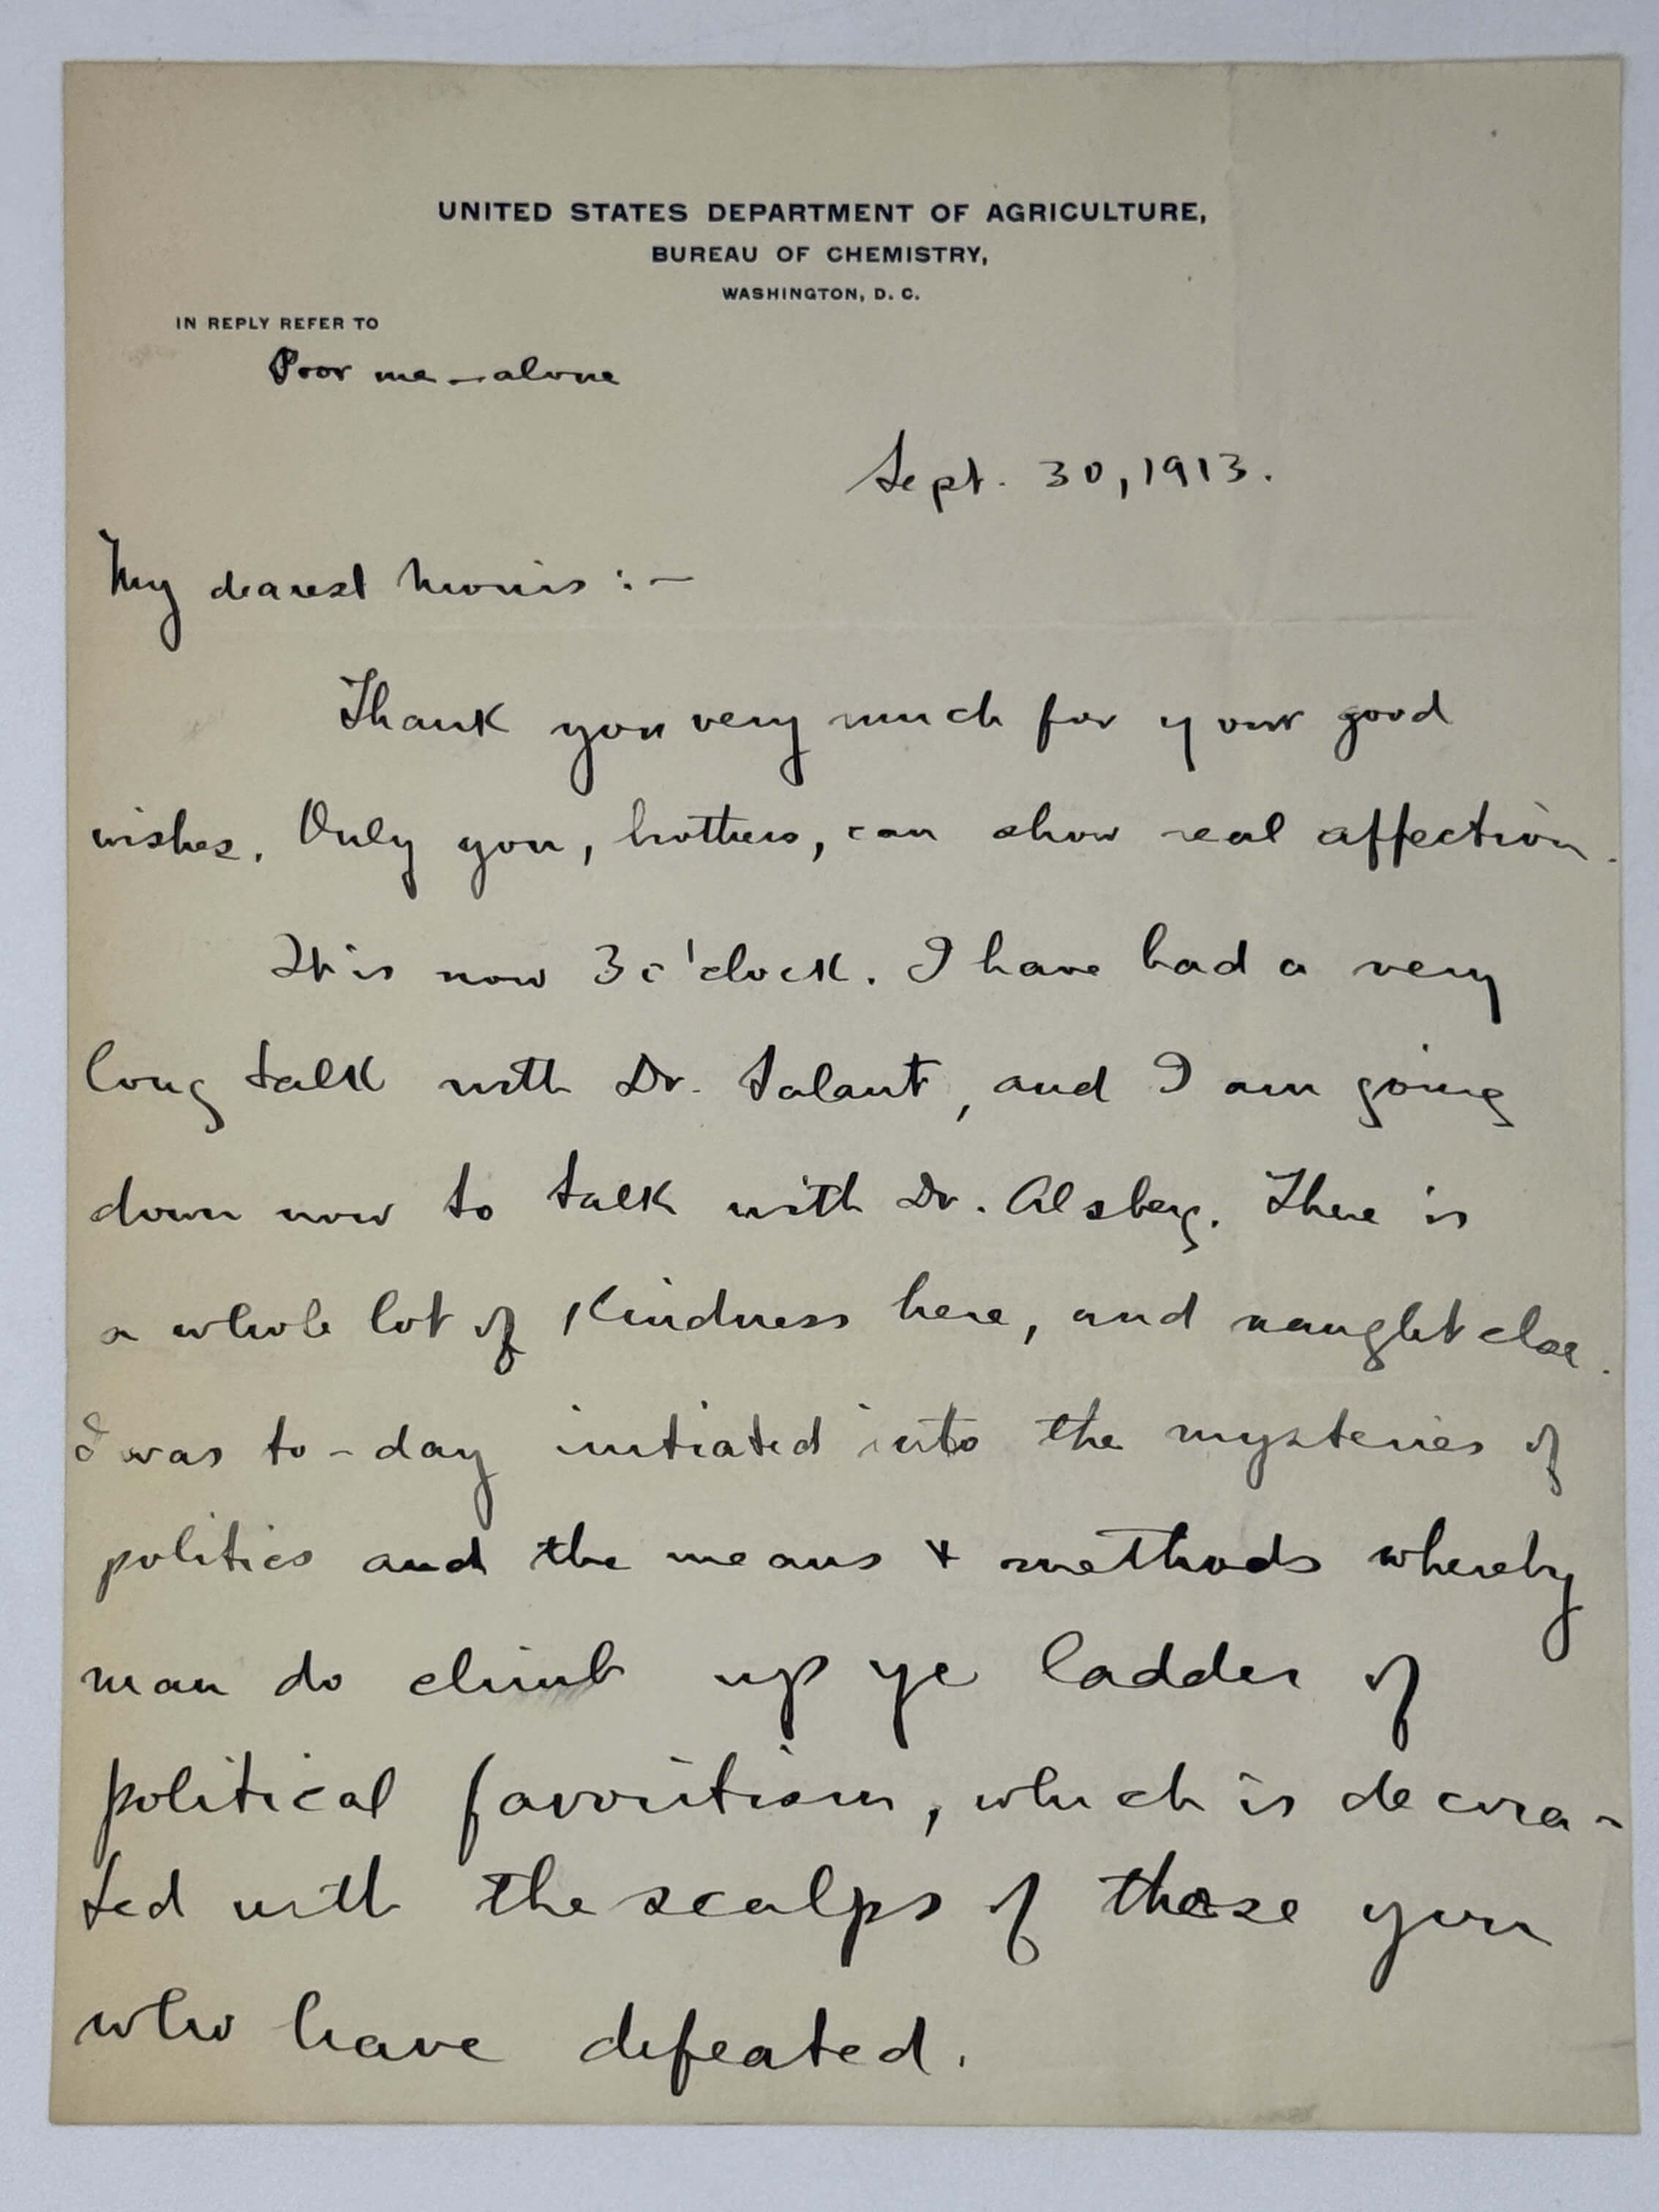 UNITED STATES DEPARTMENT OF AGRICULTURE,
BUREAU OF CHEMISTRY,
WASHINGTON, D. C.
IN REPLY REFER TO
Poor me — alone
Sept. 30, 1913.
My dearest Morris :—
Thank you very much for your good
wishes. Only you, brothers, can show real affection.
It is now 3 o'clock. I have had a very
long talk with Dr. Salant, and I am going
down now to talk with Dr. Alsberg. There is
a whole lot of kindness here, and naught else.
I was to-day initiated into the mysteries of
politics and the means & methods whereby
man do climb up ye ladder of
political favoritism, which is decora-
ted with the scalps of those you
who have defeated.